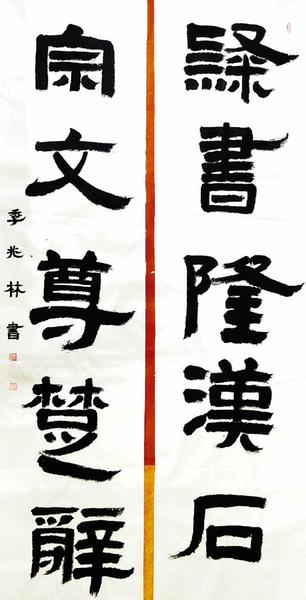 隸書隆漢石
宗文尊楚辭
季兆林書